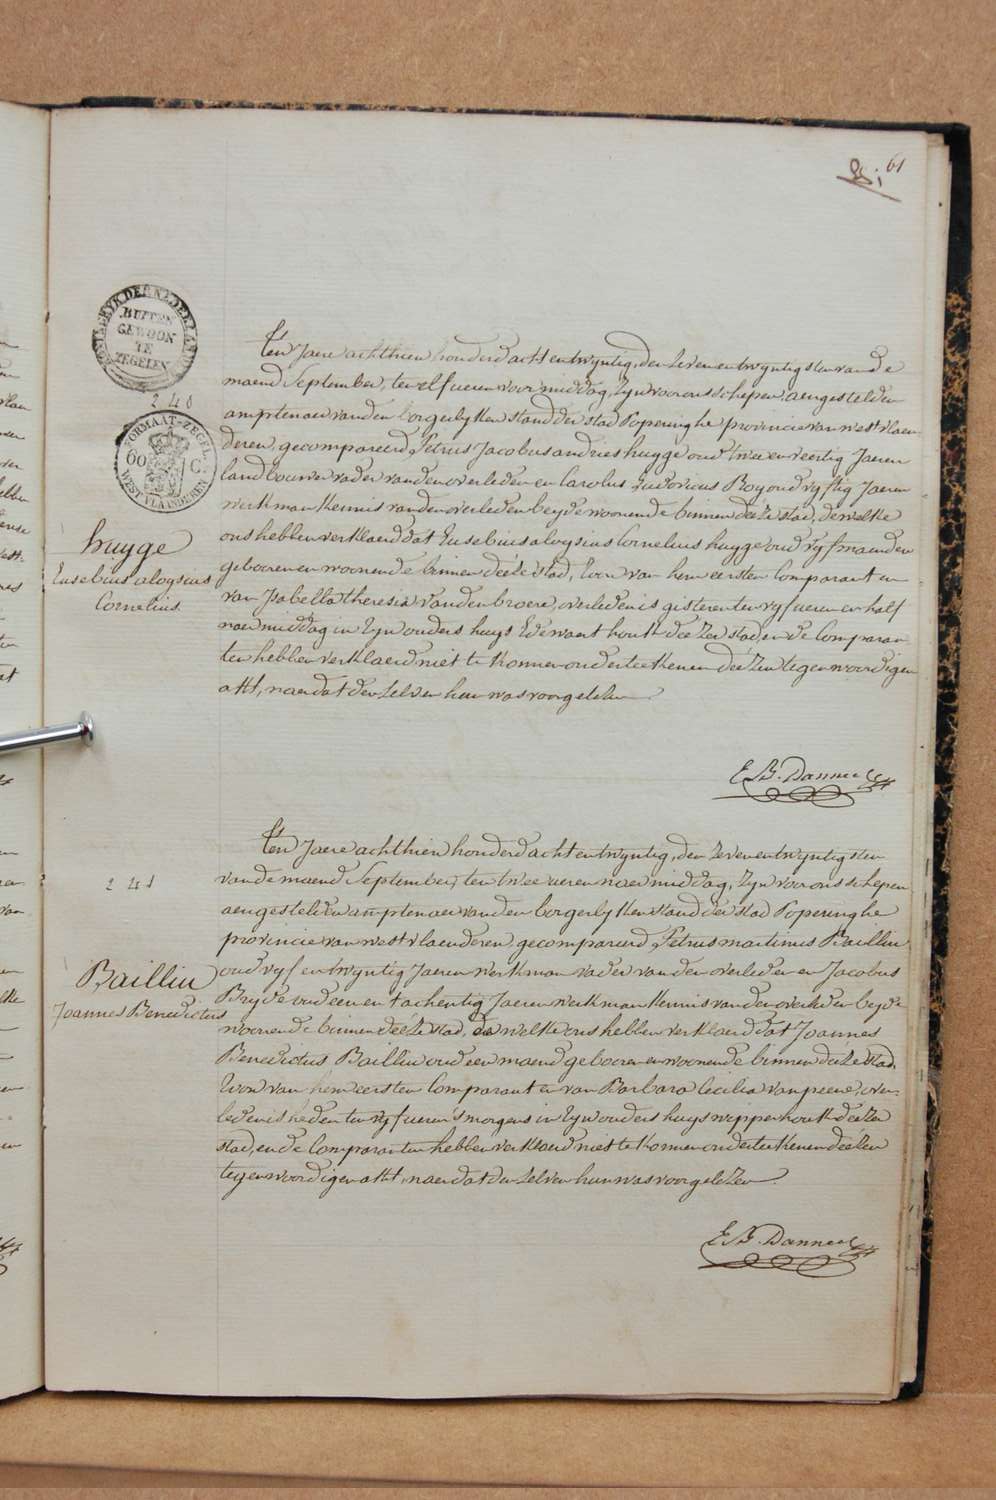 61
KONINGRYK DER NEDERLANDEN
BUITEN
GEWOON
TE
ZEGELEN
240
FORMAAT-ZEGEL
60 C.
WEST VLAANDEREN
huyge
Eusebius aloysius
Cornelius.
Ten Jaere achthien honderd acht en twyntig, den Zeven en twyntigsten van de
maend September, ten elf ueren voor middag, Zyn voor ons schepen aengestelden
amptenaer van den borgerlyken stand der stad Poperinghe provincie van westvlaen-
deren, gecompareerd Petrus Jacobus andries huyge oud twee en veertig Jaeren
landbouwer vader van den overleden en Carolus Ludovicus Roy oud vyftig Jaeren
werkman kennis van den overleden beyde woonende binnen deéze stad, dewelke
ons hebben verklaerd dat Eusebius aloysius Cornelius huyge oud vyf maenden
gebooren en woonende binnen deéze stad, Zoon van hem eersten Comparant en
van Isabella theresia vandenbroere, overleden is gisteren ten vyf ueren en half
naer middag in Zyn ouders huys Edewaert houk deéZer stad, en de Comparan
ten hebben verklaerd niet te konnen onderteekenen deéZen tegenwoordigen
akt, naer dat den Zelven hun was voorgelesen.
E. B. Danneel
241
Baillin
Joannes Benedictus
Ten Jaere achthien honderd acht en twyntig, den Zeven en twyntigsten
van de maend September, ten twee ueren naer middag, Zyn voor ons schepen
aengestelden amptenaer van den borgerlyken stand der stad Poperinghe
provincie van westvlaenderen, gecompareerd Petrus martinus Baillin
oud vyf en twyntig Jaeren werkman vader van den overleden en Jacobus
Bryde oud een en tachentig Jaeren werkman kennis van den overleden beyde
woonende binnen deéZe stad, dewelke ons hebben verklaerd dat Joannes
Benedictus Baillin oud een maend gebooren en woonende binnen deéze stad,
Zoon van hem eersten Comparant en van Barbara Cecilia vanpeene, over-
leden is heden ten vyf ueren s'morgens in Zyn ouders huys wippenhouk deéZer
stad, en de Comparanten hebben verklaerd niet te konnen onderteekenen deéZen
tegenwoordigen akt, naer dat den Zelven hun was voorgeleZen.
E. B. Danneel